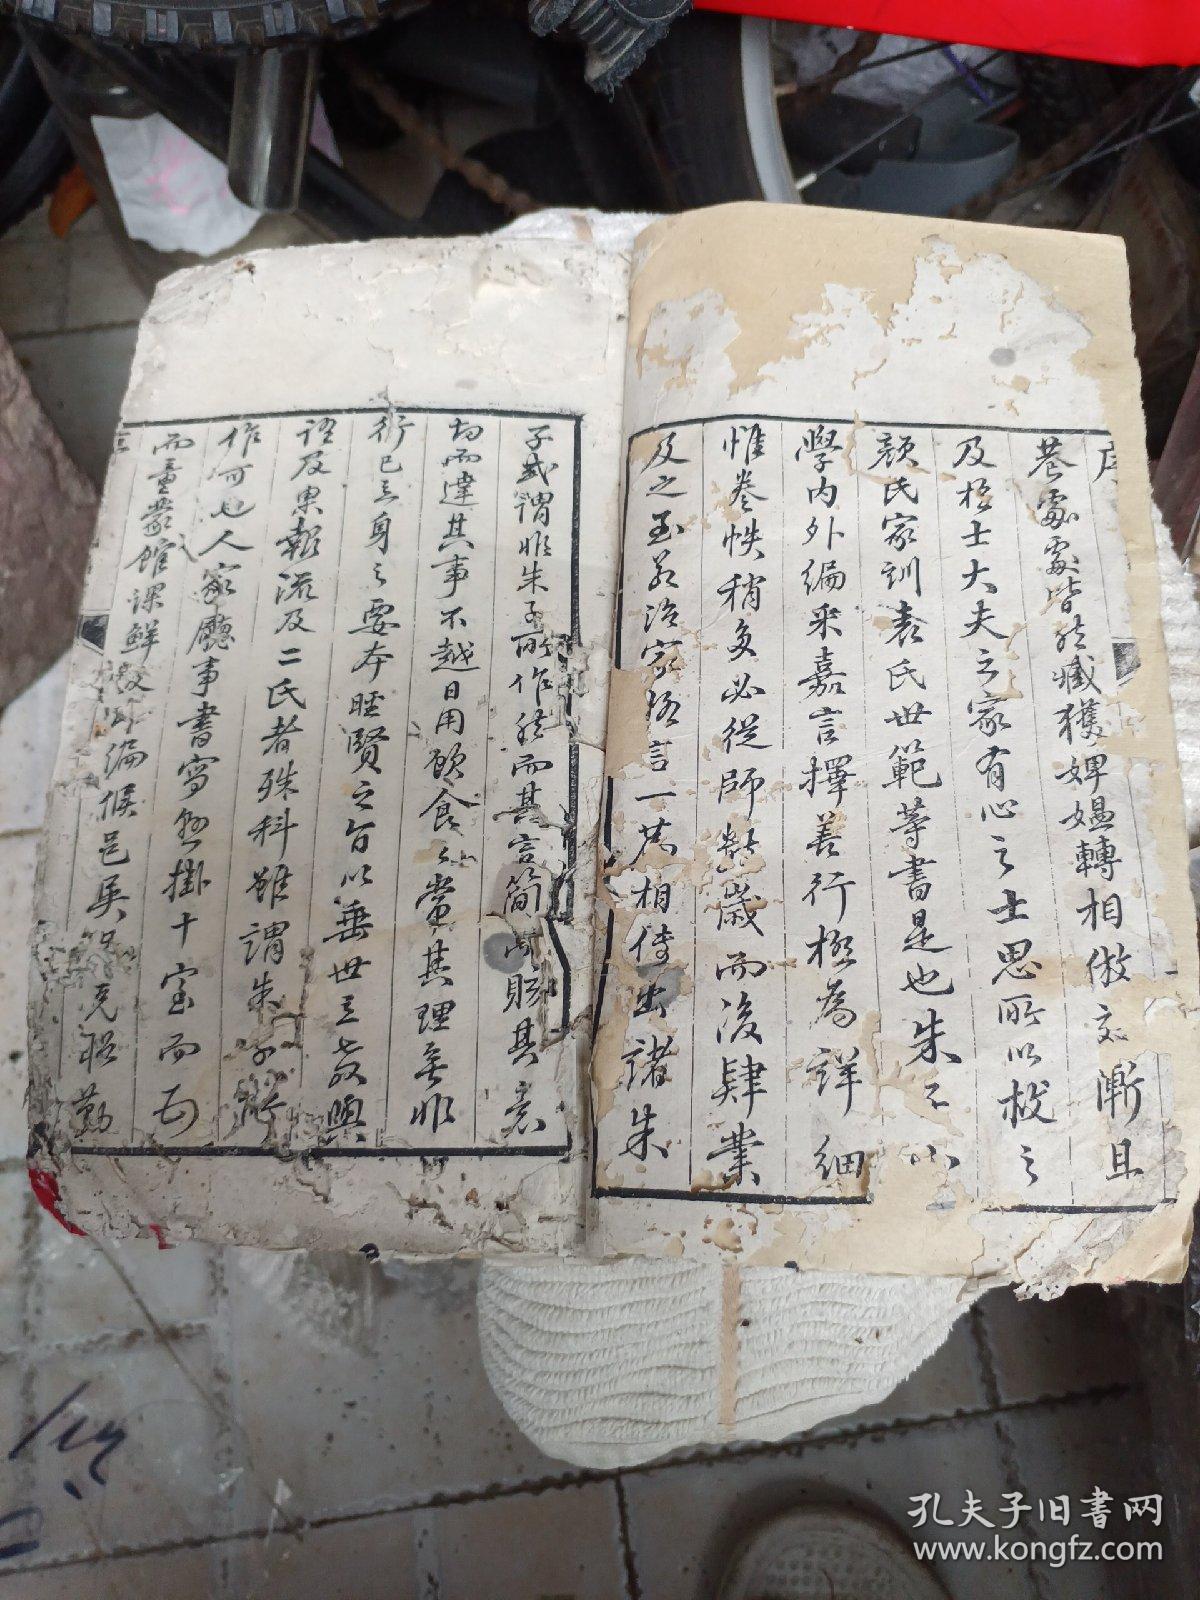 序
巷處處皆然臧獲婢媼轉相倣效漸且
及於士大夫之家有心之士思所以救之
顏氏家訓袁氏世範等書是也朱子小
學内外編采嘉言擇善行極為詳細
惟卷帙稍多必從師數歲而後肄業
及之至若治家格言一書相傳出諸朱
子或謂非朱子所作然而其言簡其意
切而達其事不越日用飲食之常其理無非
行己立身之要本聖賢之旨以垂世立教與
證及果報流及二氏者殊科雖謂朱子所
作可也人家廳事書寫懸掛十室而五
而童蒙館課鮮 編候邑吳 克昭勤
孔夫子旧书网
www.kongfz.com